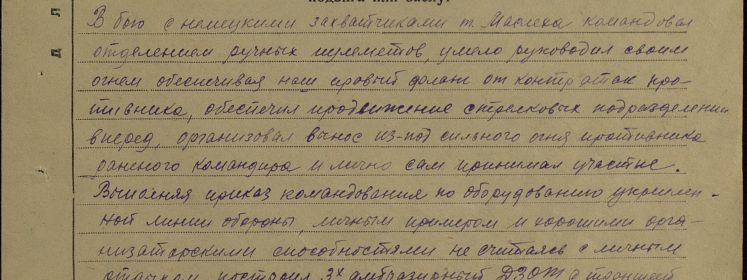 подвига или заслуг
Д Л
В бою с немецкими захватчиками т. Маслека командовал
отделением ручных пулеметов, умело руководил своим
огнем обеспечивая наш правый фланг от контр атак про-
тивника, обеспечил продвижение стрелковых подразделений
вперед, организовал вынос из-под сильного огня противника
раненого командира и лично сам принимал участие.
Выполняя приказ командования по оборудованию укреплен-
ной линии обороны, личным примером и хорошими орга-
низаторскими способностями не считаясь с личным
отдыхом построил 3х амбразурный ДЗОТ а траншей